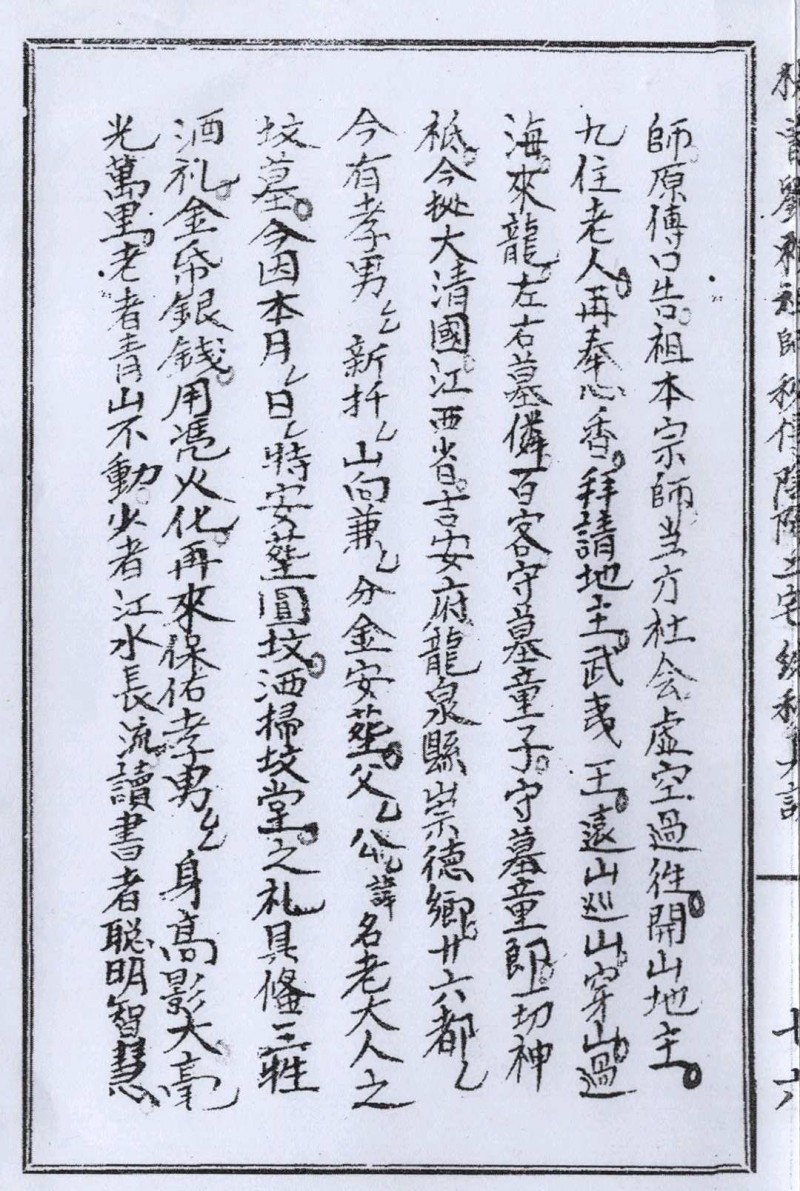 師原傳口告。祖本宗師当方社会虛空過徃。開山地主。
九住老人。再奉心香。拜請地主。武夷王。遠山巡山。穿山。過
海。來龍。左右墓隣。百客守墓童子。守墓童郎。一切神
祗。今批大清國。江西省。吉安府龍泉縣崇德鄉。廿六都〻
今有孝男〻新扦〻山向兼〻分金安塟。父〻公〻諱名老大人之
坟墓。今因本月〻日〻特安塟圓坟。洒掃坟堂。之礼具俻三牲
酒礼。金帋銀錢。用凴火化。再來保佑孝男〻身高影大毫
光萬里。老者青山不動。少者江水長流。讀書者聡明智慧
七六